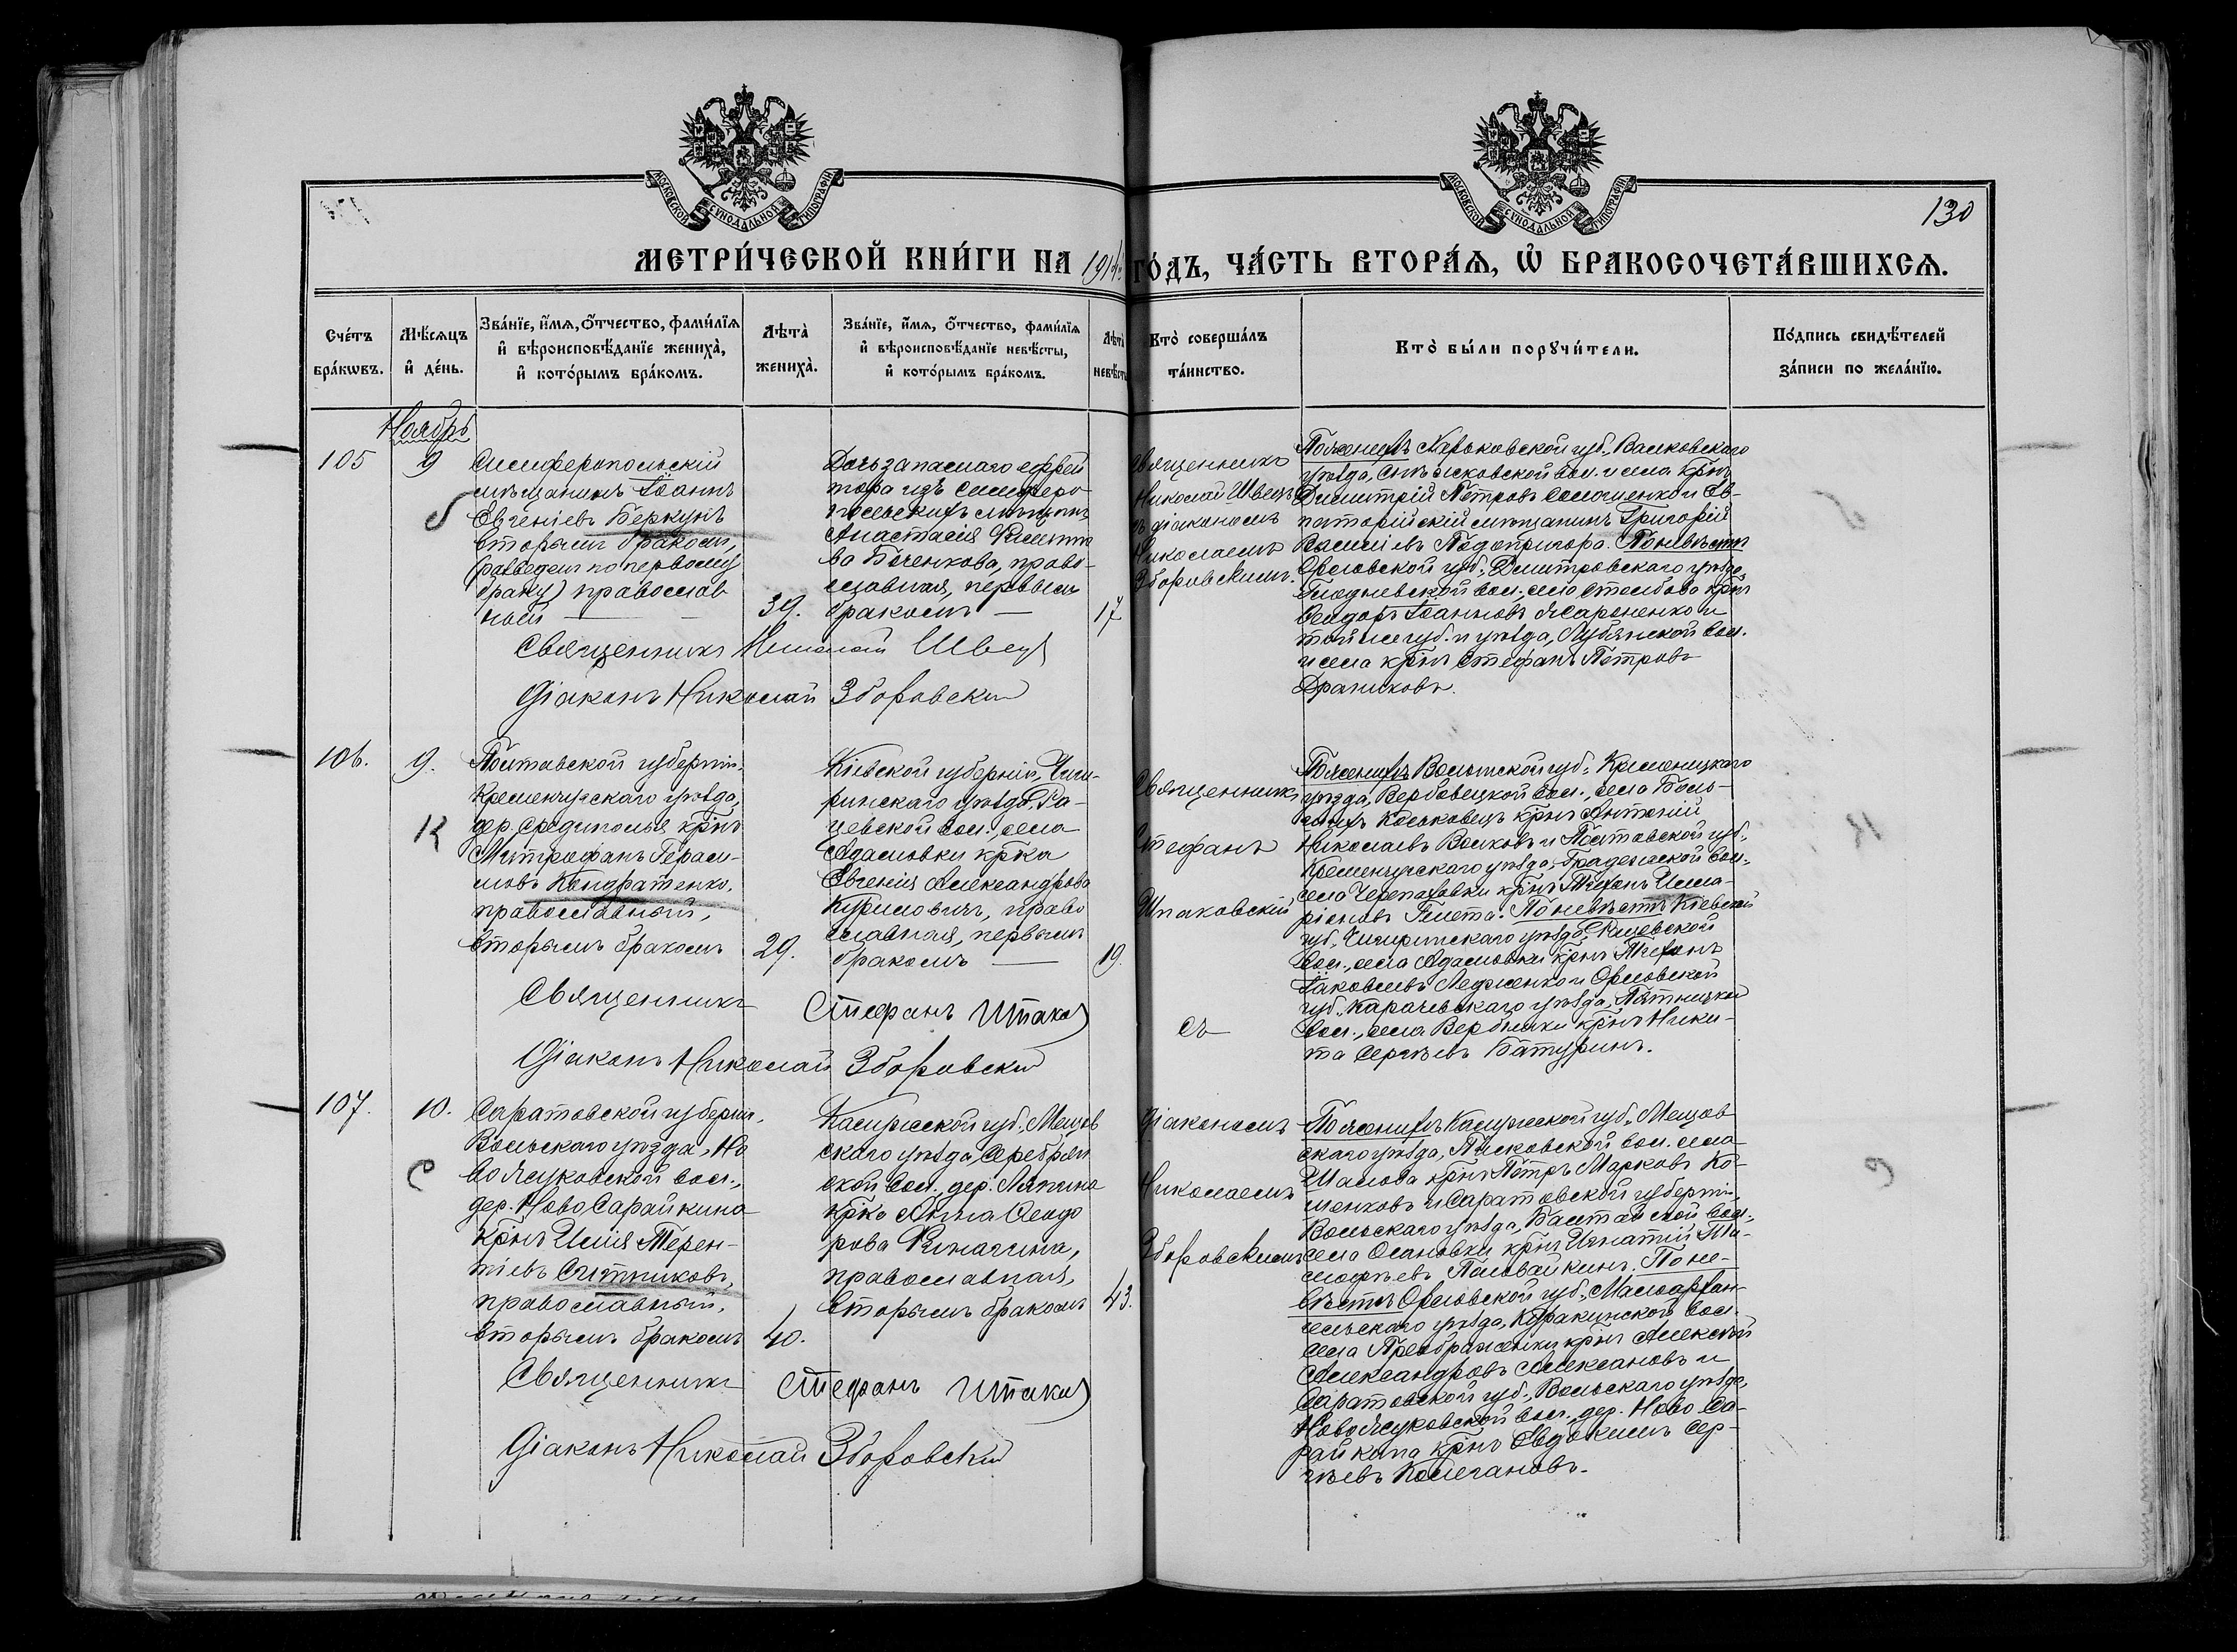 МОСКОВСКОЙ СУНОДАЛЬНОЙ ТИПОГРАФІИ
МОСКОВСКОЙ СУНОДАЛЬНОЙ ТИПОГРАФІИ
130
МЕТРИ́ЧЕСКОЙ КНИ́ГИ НА 1914 ГО́ДЪ, ЧА́СТЬ ВТОРА́Ѧ, Ѡ҆ БРАКОСОЧЕТА́ВШИХСѦ.
Сче́тъ бра́кѡвъ.
Мѣ́сѧцъ и҆ де́нь.
Зва́нїе, и҆́мѧ, ѻ҆́тчество, фами́лїѧ и҆ вѣроисповѣ́данїе жениха̀, и҆ кото́рымъ бра́комъ.
Лѣта̀ жениха̀.
Зва́нїе, и҆́мѧ, ѻ҆́тчество, фами́лїѧ и҆ вѣроисповѣ́данїе невѣ́сты, и҆ кото́рымъ бра́комъ.
Лѣта̀ невѣ́сты
Кто̀ соверша́лъ та́инство.
Кто̀ бы́ли порꙋчи́тели.
По́дпись свидѣ́телей за́писи по жела́нїю.
Ноябрь
105
9
Симферопольскій
мѣщанинъ Іоаннъ
Евгеніевъ Беркунъ
вторымъ бракомъ,
(разведен по первому
браку) православ
ный
39.
Дочь запаснаго ефрей
тора изъ Симферо
польскихъ мѣщанъ
Анастасія
ва Боченкова, право-
славная, первымъ
бракомъ
17
Священникъ
Николай Швецъ
съ діакономъ
Николаемъ
Зборовскимъ.
По женихѣ Харьковской губ., Валковскаго
уѣзда, вол. и села крнъ
Димитрій Петровъ и Ев-
паторійскій мѣщанинъ Григорій
Василіевъ Подопригора. По невѣстѣ
Орловской губ., Дмитровскаго уѣзда,
вол., села Столбова крнъ
Ѳеодоръ Іоанновъ и
той же губ. и уѣзда, Лубянской вол.
и села крнъ Стефанъ Петровъ
Драниковъ.
Священникъ Николай Швецъ
Діаконъ Николай Зборовскій
106.
9.
К
Полтавской губерніи,
Кременчугскаго уѣзда,
дер. крнъ
Митрофанъ Гераси-
мовъ Кондратенко,
православный,
вторымъ бракомъ
29.
Кіевской губерніи, Чиги-
ринскаго уѣзда, Ра-
цевской вол. села
Адамовки крка
Евгенія Александрова
Куриловичъ, право
славная, первымъ
бракомъ
19.
Священникъ
Стефанъ
Шпаковскій
съ
По женихѣ Волынской губ. Кременецкаго
уѣзда, Вербовецкой вол., села Боль-
крнъ Антоній
Николаевъ Волковъ и Полтавской губ.
Кременчугскаго уѣзда, Градижской вол.,
села Черепаховки крнъ Тихонъ
По невѣстѣ Кіевской
губ. Чигиринскаго уѣзда, Рацевской
вол., села Адамовки крнъ Тихонъ
Іаковлевъ и Орловской
губ., Карачевскаго уѣзда, Пятницкой
вол., села крнъ Ники-
та Сергѣевъ Батуринъ.
Священникъ Стефанъ Шпаков
Діаконъ Николай Зборовскій
107.
10.
С
Саратовской губерніи,
Вольскаго уѣзда, Но
во Жуковской вол.,
дер. Ново Сарайкина
крнъ Илія Терен-
тіевъ Ситниковъ,
православный,
вторымъ бракомъ
40.
Калужской губ., Мещов
скаго уѣзда, Серебрян
ской вол. дер. Ляпина
крка Анна Ѳеодо
рова Киначина,
православная,
вторымъ бракомъ
43.
діакономъ
Николаемъ
Зборовскимъ
По женихѣ Калужской губ., Мещов-
скаго уѣзда, вол. села
Шалова крнъ Петръ Марковъ Ко-
ленковъ и Саратовской губерніи
Вольскаго уѣзда, вол.,
села Осановки крнъ Игнатій Ти-
моѳеевъ Паловайкинъ. По не-
вѣстѣ Орловской губ., Малоархан-
гельскаго уѣзда, Куракинской вол.
села Преображенки крнъ Алексѣй
Александровъ и
Саратовской губ., Вольскаго уѣзда,
Ново Жуковской вол. дер. Ново Са-
райкина крнъ Евдокимъ Сер-
гѣевъ Колегановъ.
Священникъ Стефанъ Шпаков
Діаконъ Николай Зборовскій